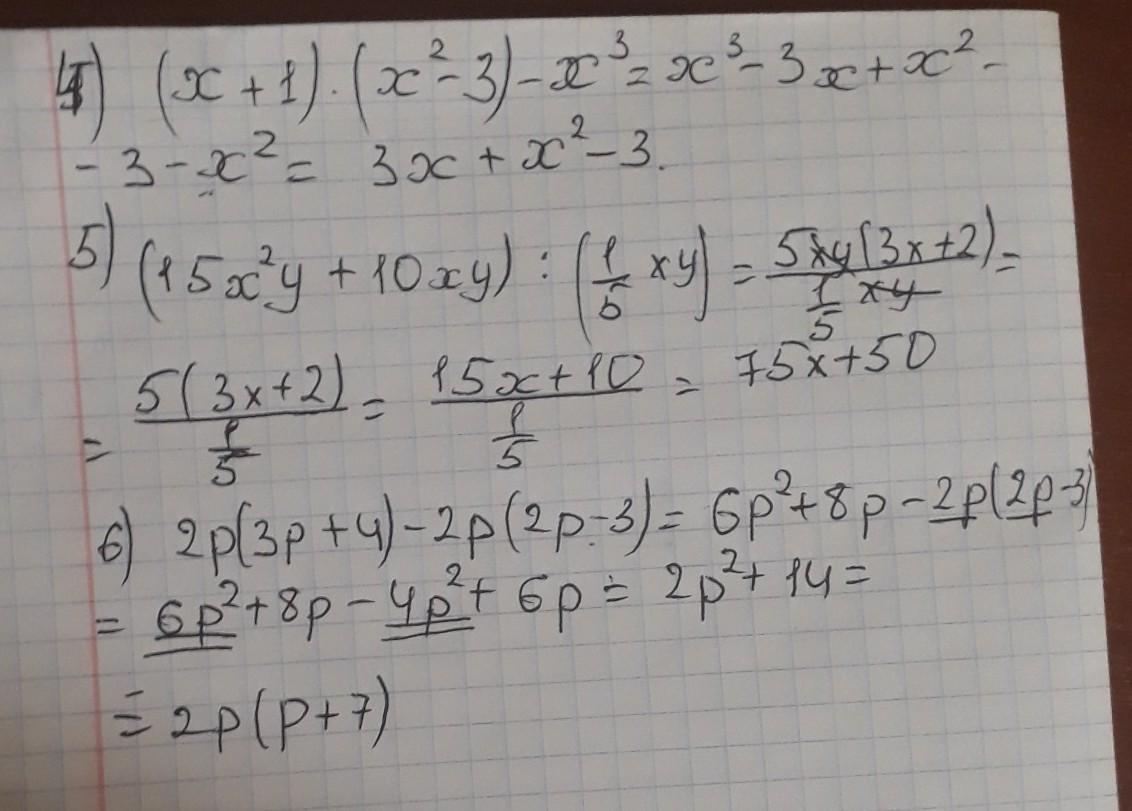 4) (x + 1) · (x² - 3) - x³ = x³ - 3x + x² -
- 3 - x² = 3x + x² - 3.
5) (15x²y + 10xy) : (1/5 xy) = 5xy(3x+2) / 1/5 xy =
= 5(3x+2) / 1/5 = 15x+10 / 1/5 = 75x+50
6) 2p(3p+4) - 2p(2p-3) = 6p² + 8p - 2p(2p-3)
= 6p² + 8p - 4p² + 6p = 2p² + 14 =
= 2p(p+7)